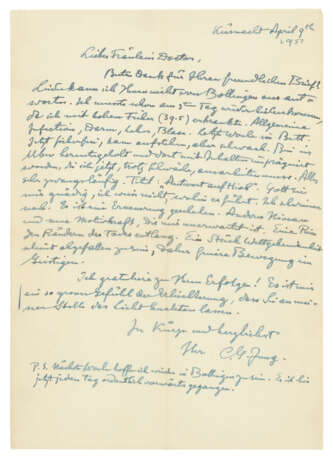 Küsnacht April 9th
1951
Liebes Fräulein Doctor,
Besten Dank für Ihren freundlichen Brief!
Leider kann ich Ihnen nicht von Bollingen aus ant=
worten. Ich musste schon am 3ten Tag wieder heimkommen,
da ich mit hohem Fieber (39.5) erkrankte. Allgemeine
Infection, Darm, Leber, Blase. Letzte Woche im Bett.
Jetzt fieberfrei, kann aufstehen, aber schwach. Bin im
Ufer heruntergeholt und dort mit Inhalten imprägniert
worden, die ich jetzt, trotz Schwäche, ausarbeiten muss. Alles
sehr zwangsläufig. Titel: "Antwort auf Hiob". Gott sei
mir gnädig, ich weiss nicht wohin es führt. Ich schreibe
nach. Es ist eine Erneuerung geschehen. Anderes Niveau
und neue Motivkraft, die mir unerwartet ist. Eine
den Rändern des Todes entlang. Ein Stück Weltgebundenheit
scheint abgefallen zu sein, daher freiere Bewegung im
Geistigen.
Ich gratuliere zu Ihrem Erfolge! Es ist mir
ein so grosses Gefühl der Erleichterung, dass Sie an mei=
ner Stelle das Licht leuchten lassen.
In Kürze und herzlichst
Ihr C. G. Jung.
P. S. Nächste Woche hoffe ich wieder in Bollingen zu sein. Es ist bis
jetzt jeden Tag ordentlich vorwärts gegangen.